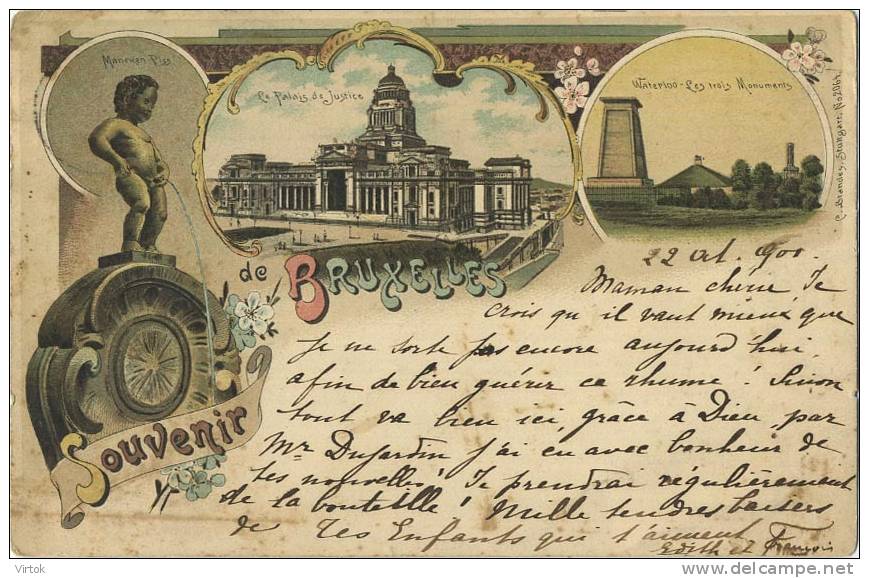 Maneken Piss
Le Palais de Justice
Waterloo - Les trois Monuments
C. Brandes, Stuttgart, No 2064.
Souvenir
de BRUXELLES
22 Oct. 900
Maman chérie, Je
crois qu'il vaut mieux que
je ne sorte pas encore aujourd'hui,
afin de bien guérir ce rhume! Sinon
tout va bien ici, grâce à Dieu, par
Mr Dujardin j'ai eu avec bonheur de
tes nouvelles! Je prendrai régulièrement
de la bouteille! Mille tendres baisers
de Tes Enfants qui t'aiment
Edith et François
© Virtok
delcampe.net